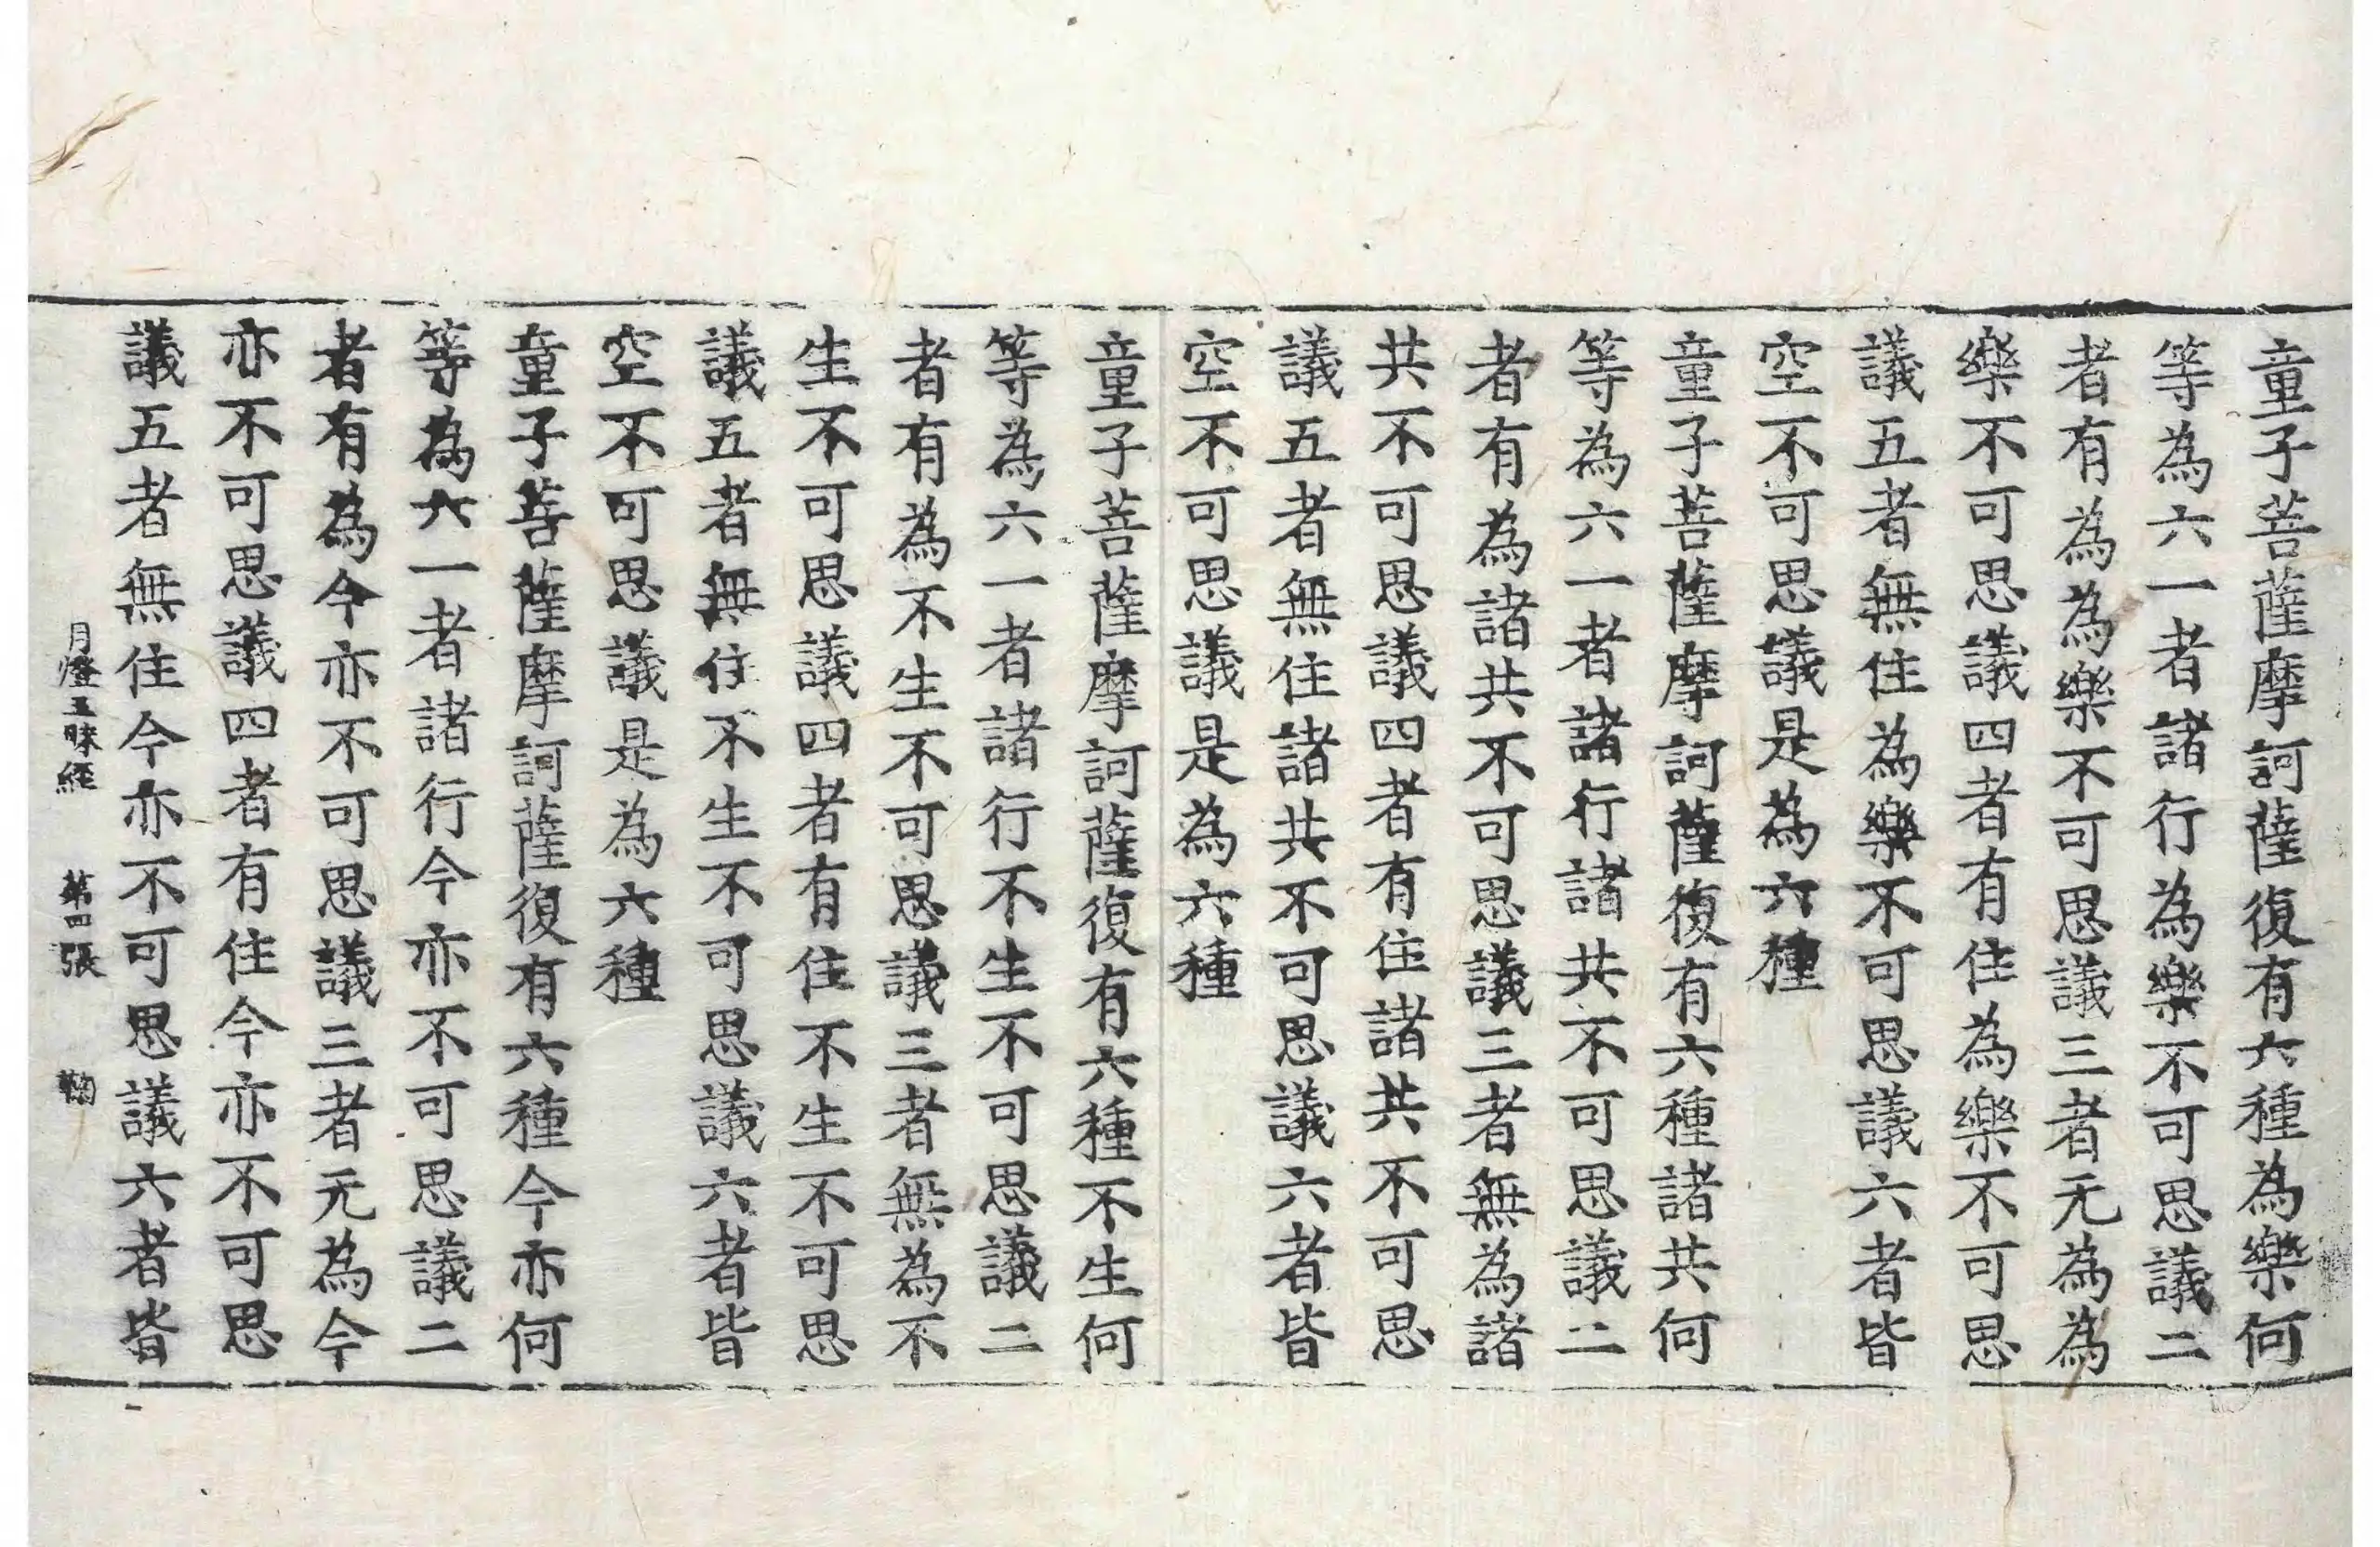 童子菩薩摩訶薩復有六種為樂何
等為六一者諸行為樂不可思議二
者有為為樂不可思議三者无為為
樂不可思議四者有住為樂不可思
議五者無住為樂不可思議六者皆
空不可思議是為六種
童子菩薩摩訶薩復有六種諸共何
等為六一者諸行諸共不可思議二
者有為諸共不可思議三者無為諸
共不可思議四者有住諸共不可思
議五者無住諸共不可思議六者皆
空不可思議是為六種
童子菩薩摩訶薩復有六種不生何
等為六一者諸行不生不可思議二
者有為不生不可思議三者無為不
生不可思議四者有住不生不可思
議五者無住不生不可思議六者皆
空不可思議是為六種
童子菩薩摩訶薩復有六種今亦何
等為六一者諸行今亦不可思議二
者有為今亦不可思議三者无為今
亦不可思議四者有住今亦不可思
議五者無住今亦不可思議六者皆
月燈三昧経 第四張 鞠